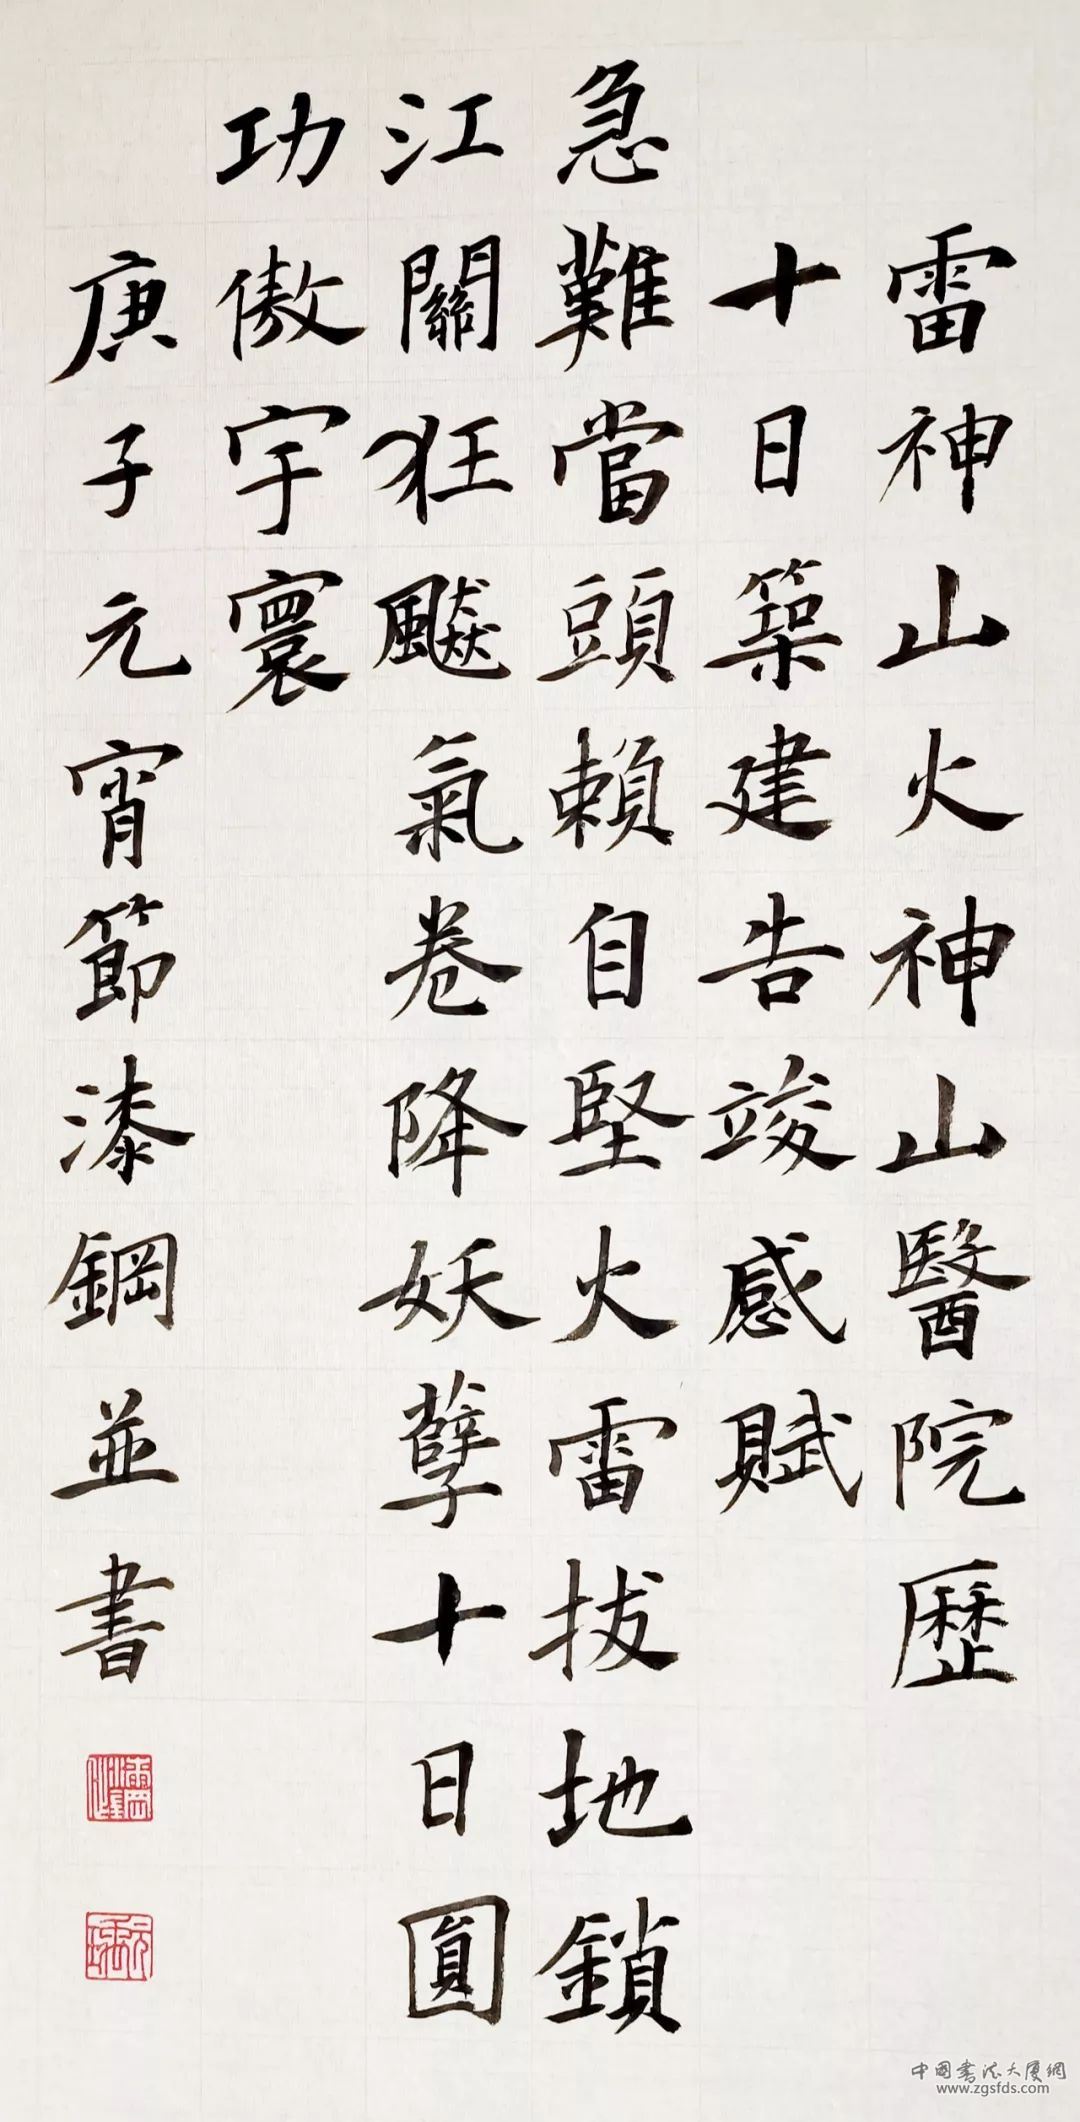 雷神山火神山醫院歷
十日築建告竣感賦
急難當頭賴自堅火雷拔地鎖
江關狂飈氣卷降妖孽十日圓
功傲宇寰
庚子元宵節漆鋼並書
中國書法大厦網
www.zgsfds.com